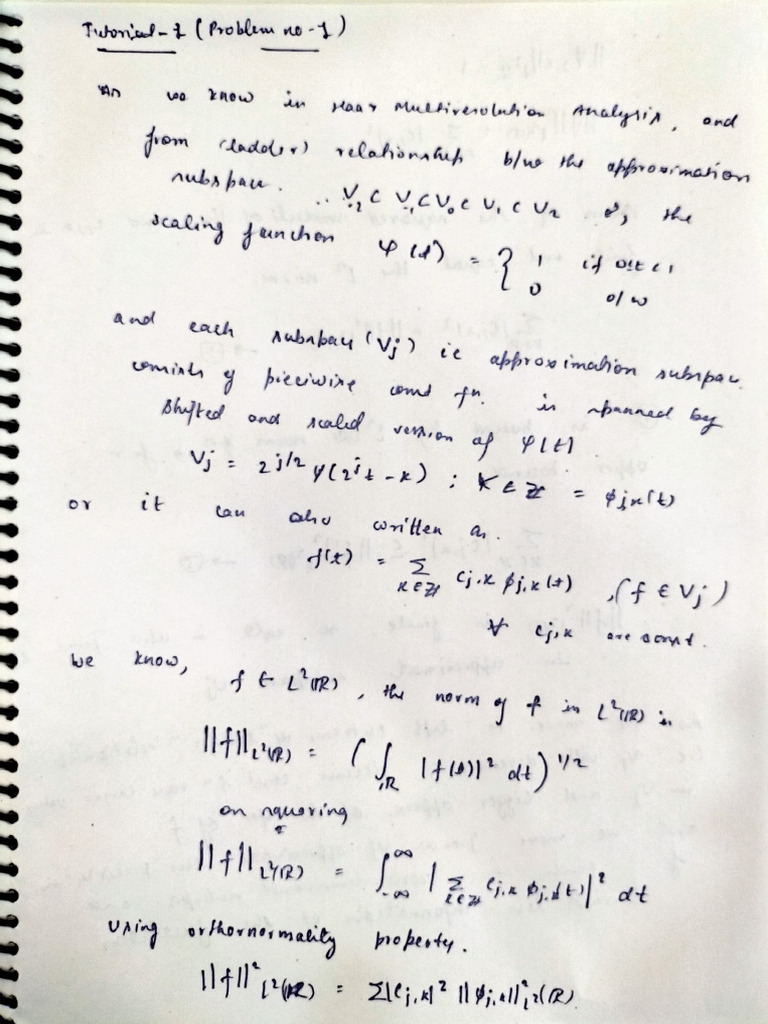 Tutorial-1 (Problem no-1)
As we know in Haar Multiresolution Analysis, and
from (ladder) relationship b/w the approximation
subspace. .. V₋₂ ⊂ V₋₁ ⊂ V₀ ⊂ V₁ ⊂ V₂ &, the
scaling function φ(t) = { 1 if 0≤t<1
0 o/w
and each subspace (Vj) ie approximation subspace
consists of piecewise const fn. is spanned by
shifted and scaled version of φ(t)
Vj = 2^{j/2} φ(2^j t - k) ; k ∈ ℤ = ϕj,k(t)
or it can also written as.
f(t) = Σ_{k∈ℤ} cj,k ϕj,k(t) , (f ∈ Vj)
∀ cj,k are const.
We know, f ∈ L²(ℝ), the norm of f in L²(ℝ) is
||f||_{L²(ℝ)} = (∫_ℝ |f(t)|² dt)^{1/2}
on squaring
||f||_{L²(ℝ)} = ∫_{-∞}^{∞} | Σ_{k∈ℤ} cj,k ϕj,k(t)|² dt
using orthornormality property.
||f||²_{L²(ℝ)} = Σ|cj,k|² ||ϕj,k||²_{L²(ℝ)}